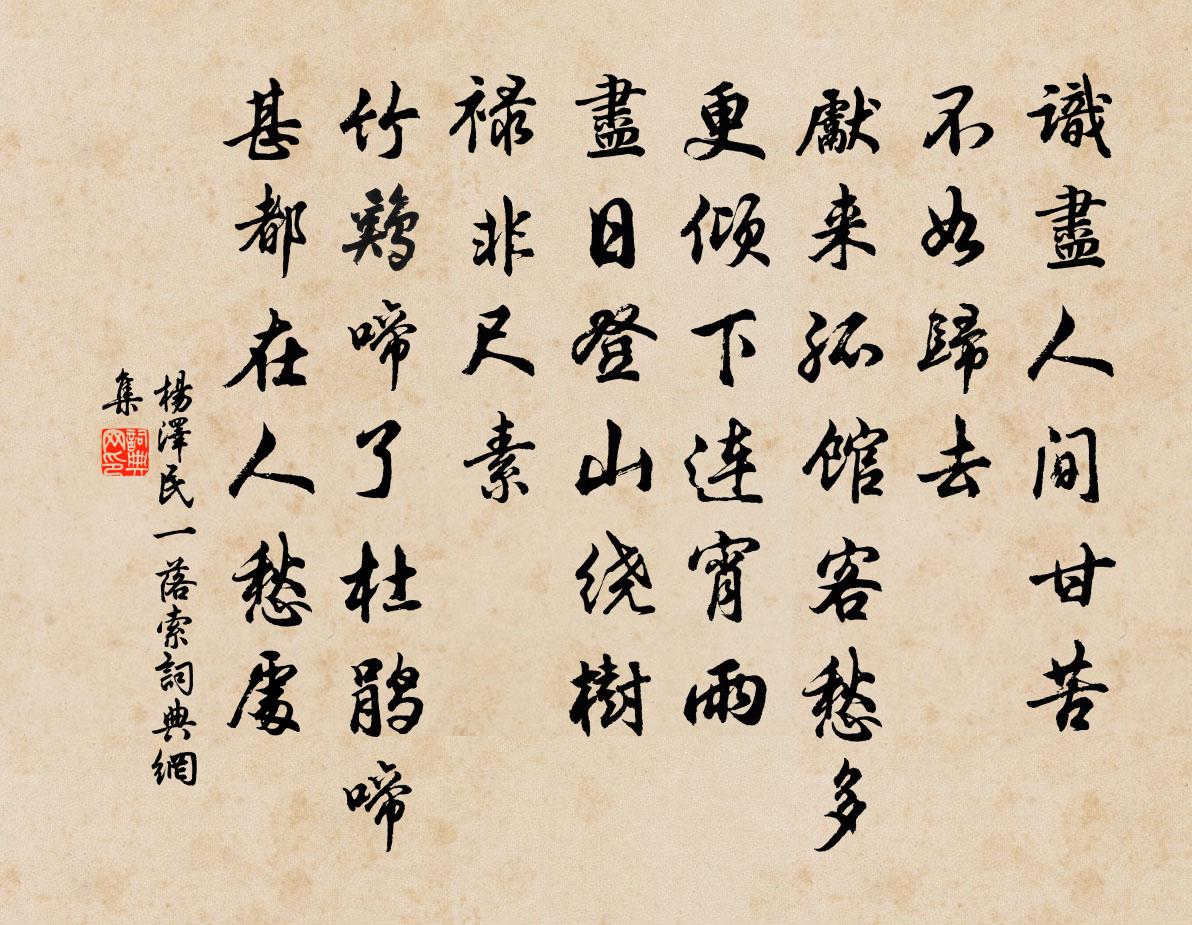 識盡人間甘苦
不如歸去
獻来孤館客愁多
更傾下连宵雨
盡日登山绕樹
禄非尺素
竹鷄啼了杜鹃啼
甚都在人愁處
楊澤民一落索詞典網
集
詞典网印